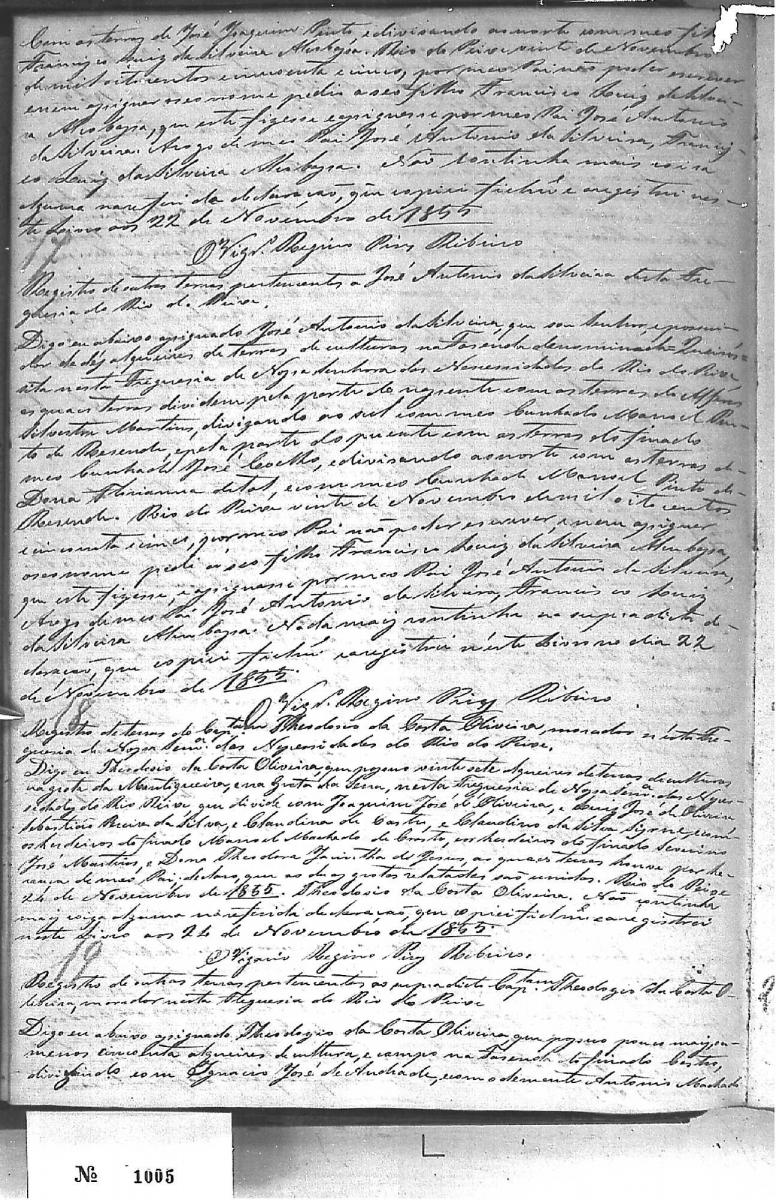 Com as terras de José Joaquim Pinto, e divisando ao norte com meo filho
Francisco Luiz da Silveira Rio do Peixe vinte de Novembro
de mil oito centos e cincoenta e cinco, por meo Pai não poder escrever
e nem asignar o seo nome pedio a seo filho Francisco Luiz da Silvei-
ra que este fizesse e asignasse por meo Pai José Antonio
da Silveira. Arogo de meo Pai José Antonio da Silveira, Francis-
co Luiz da Silveira Não continha mais coisa
alguma na referida declaração, que copiei fielmê e registrei nes-
te Livro aos 22 de Novembro de 1855
O Vigrº Regino Pires Ribeiro
17
Registro de outras terras pertencentes a José Antonio da Silveira desta Fre-
guesia do Rio do Peixe,
Digo eu abaixo asignado José Antonio da Silveira, que sou Senhor, e possui-
dor de dés alqueires de terras de culturas na Fasenda denominada
nesta Freguesia de Nossa Senhora das Necessidades do Rio do Peixe
as quaes terras dividem pela parte do nascente com as terras do Alferes
Silvestre Martins, divizando ao sul com meo Cunhado Manoel Pin-
to de Resende, e pela parte do puente com as terras do finado
meo Cunhado José Coelho, e divisando ao norte com as terras de
Dona Florianna de tal, e com meo Cunhado Manoel Pinto de
Resende. Rio do Peixe vinte de Novembro de mil oito centos
e cincoenta e cinco, por meo Pai não poder escrever, e nem asignar
o seo nome pedi a seo filho Francisco Luiz da Silveira
que este fizesse, e asignasse por meo Pai José Antonio da Silveira,
Arogo de meo Pai José Antonio da Silveira, Francisco Luiz
da Silveira Nada mais continha na supradicta de-
claração, que copiei fielmê e registrei n'este Livro no dia 22
de Novembro de 1855.
O Vigrº Regino Pires Ribeiro
18
Registro de terras do Capitam Theodosio da Costa Oliveira, morador n'esta Fre-
guesia de Nossa Senrª das Necessidades do Rio do Peixe.
Digo eu Theodosio da Costa Oliveira, que possuo vinte sete alqueires de terras de culturas
na grota da Mantiqueira, e na Grota da Serra, nesta Freguesia de Nossa Senrª das Neces-
sidades do Rio do Peixe que divide com Joaquim José de Oliveira, e Luiz José de Oliveira
Sebastião da Silva, e Claudina de Castro, e Claudino da Silva e com
os herdeiros do finado Manoel Machado de e os herdeiros do finado Severino
José Martins, e Dona Theodora Jacintha de Jesus, as quaes terras houve por he-
rança de meo Pai, declaro, que as duas grotas relatadas são unidas. Rio do Peixe
24 de Novembro de 1855. Theodosio da Costa Oliveira. Não continha
mais coiza alguma na referida declaração, que copiei fielmê e a registrei
neste Livro aos 24 de Novembro de 1855.
O Vigario Regino Pires Ribeiro.
19
Registro de outras terras pertencentes ao supradicto Capitam Theodozio da Costa O-
liveira, morador nesta Freguesia do Rio do Peixe
Digo eu abaixo asignado Theodozio da Costa Oliveira, que possuo pouco mais, ou
menos cincoenta alqueires de cultura, e campo na Fasenda do finado Castro,
divizando com Ignacio José de Andrade, e com o demente Antonio Machado
Nº 1005